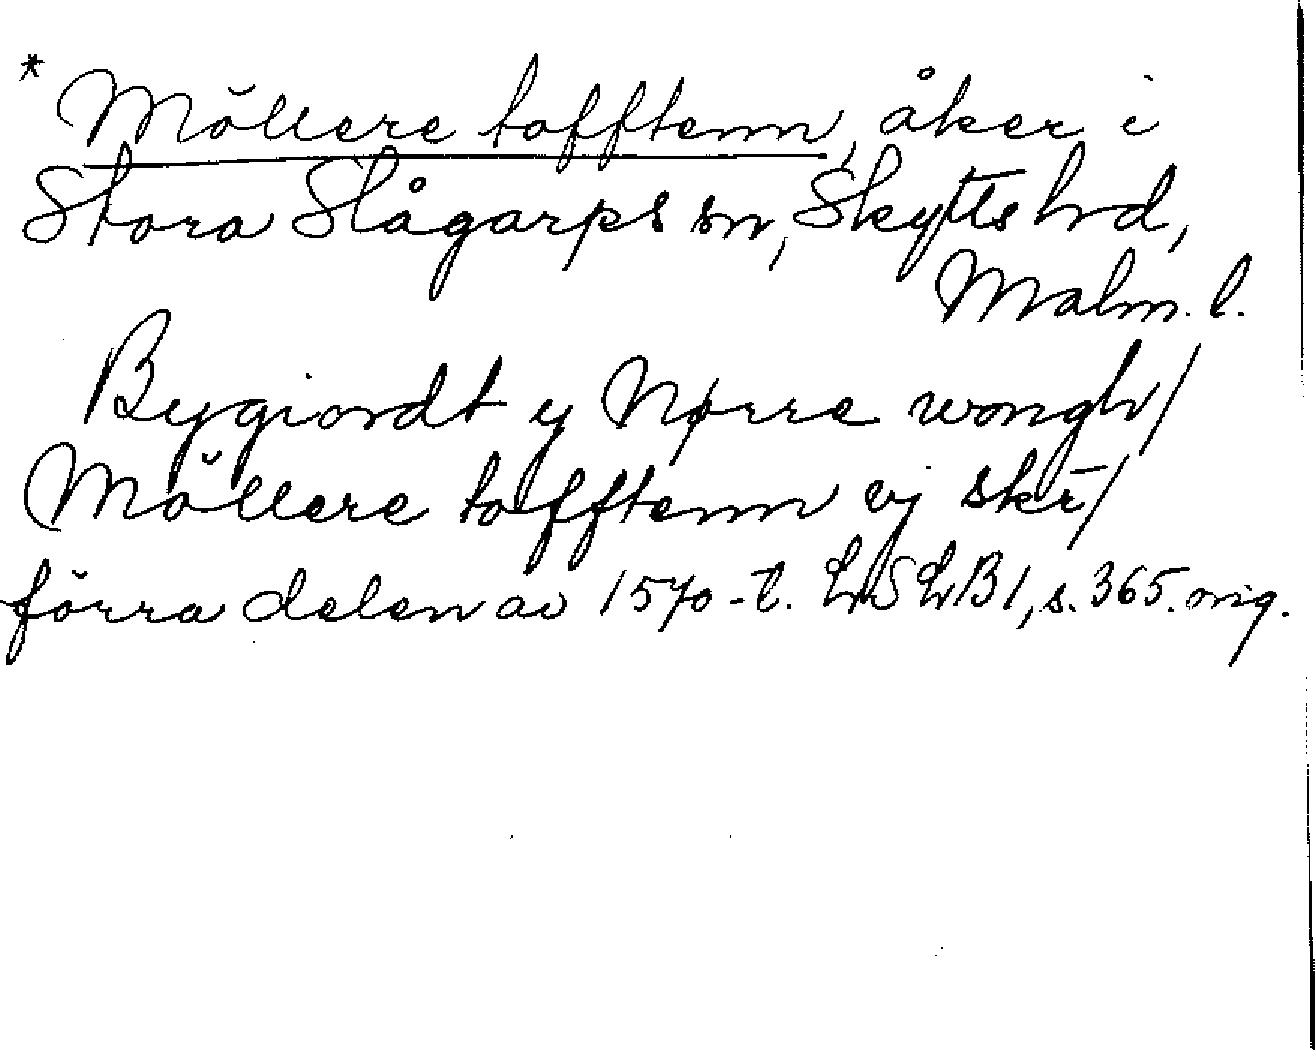 * Möllere tofftenn, åker i
Stora Slågarps sn, Skytts hrd,
Malm. l.
Bygiordt y Nørre wongh/
Möllere tofftenn vj skr̄/
förra delen av 1570-t. LSLB1, s. 365. orig.